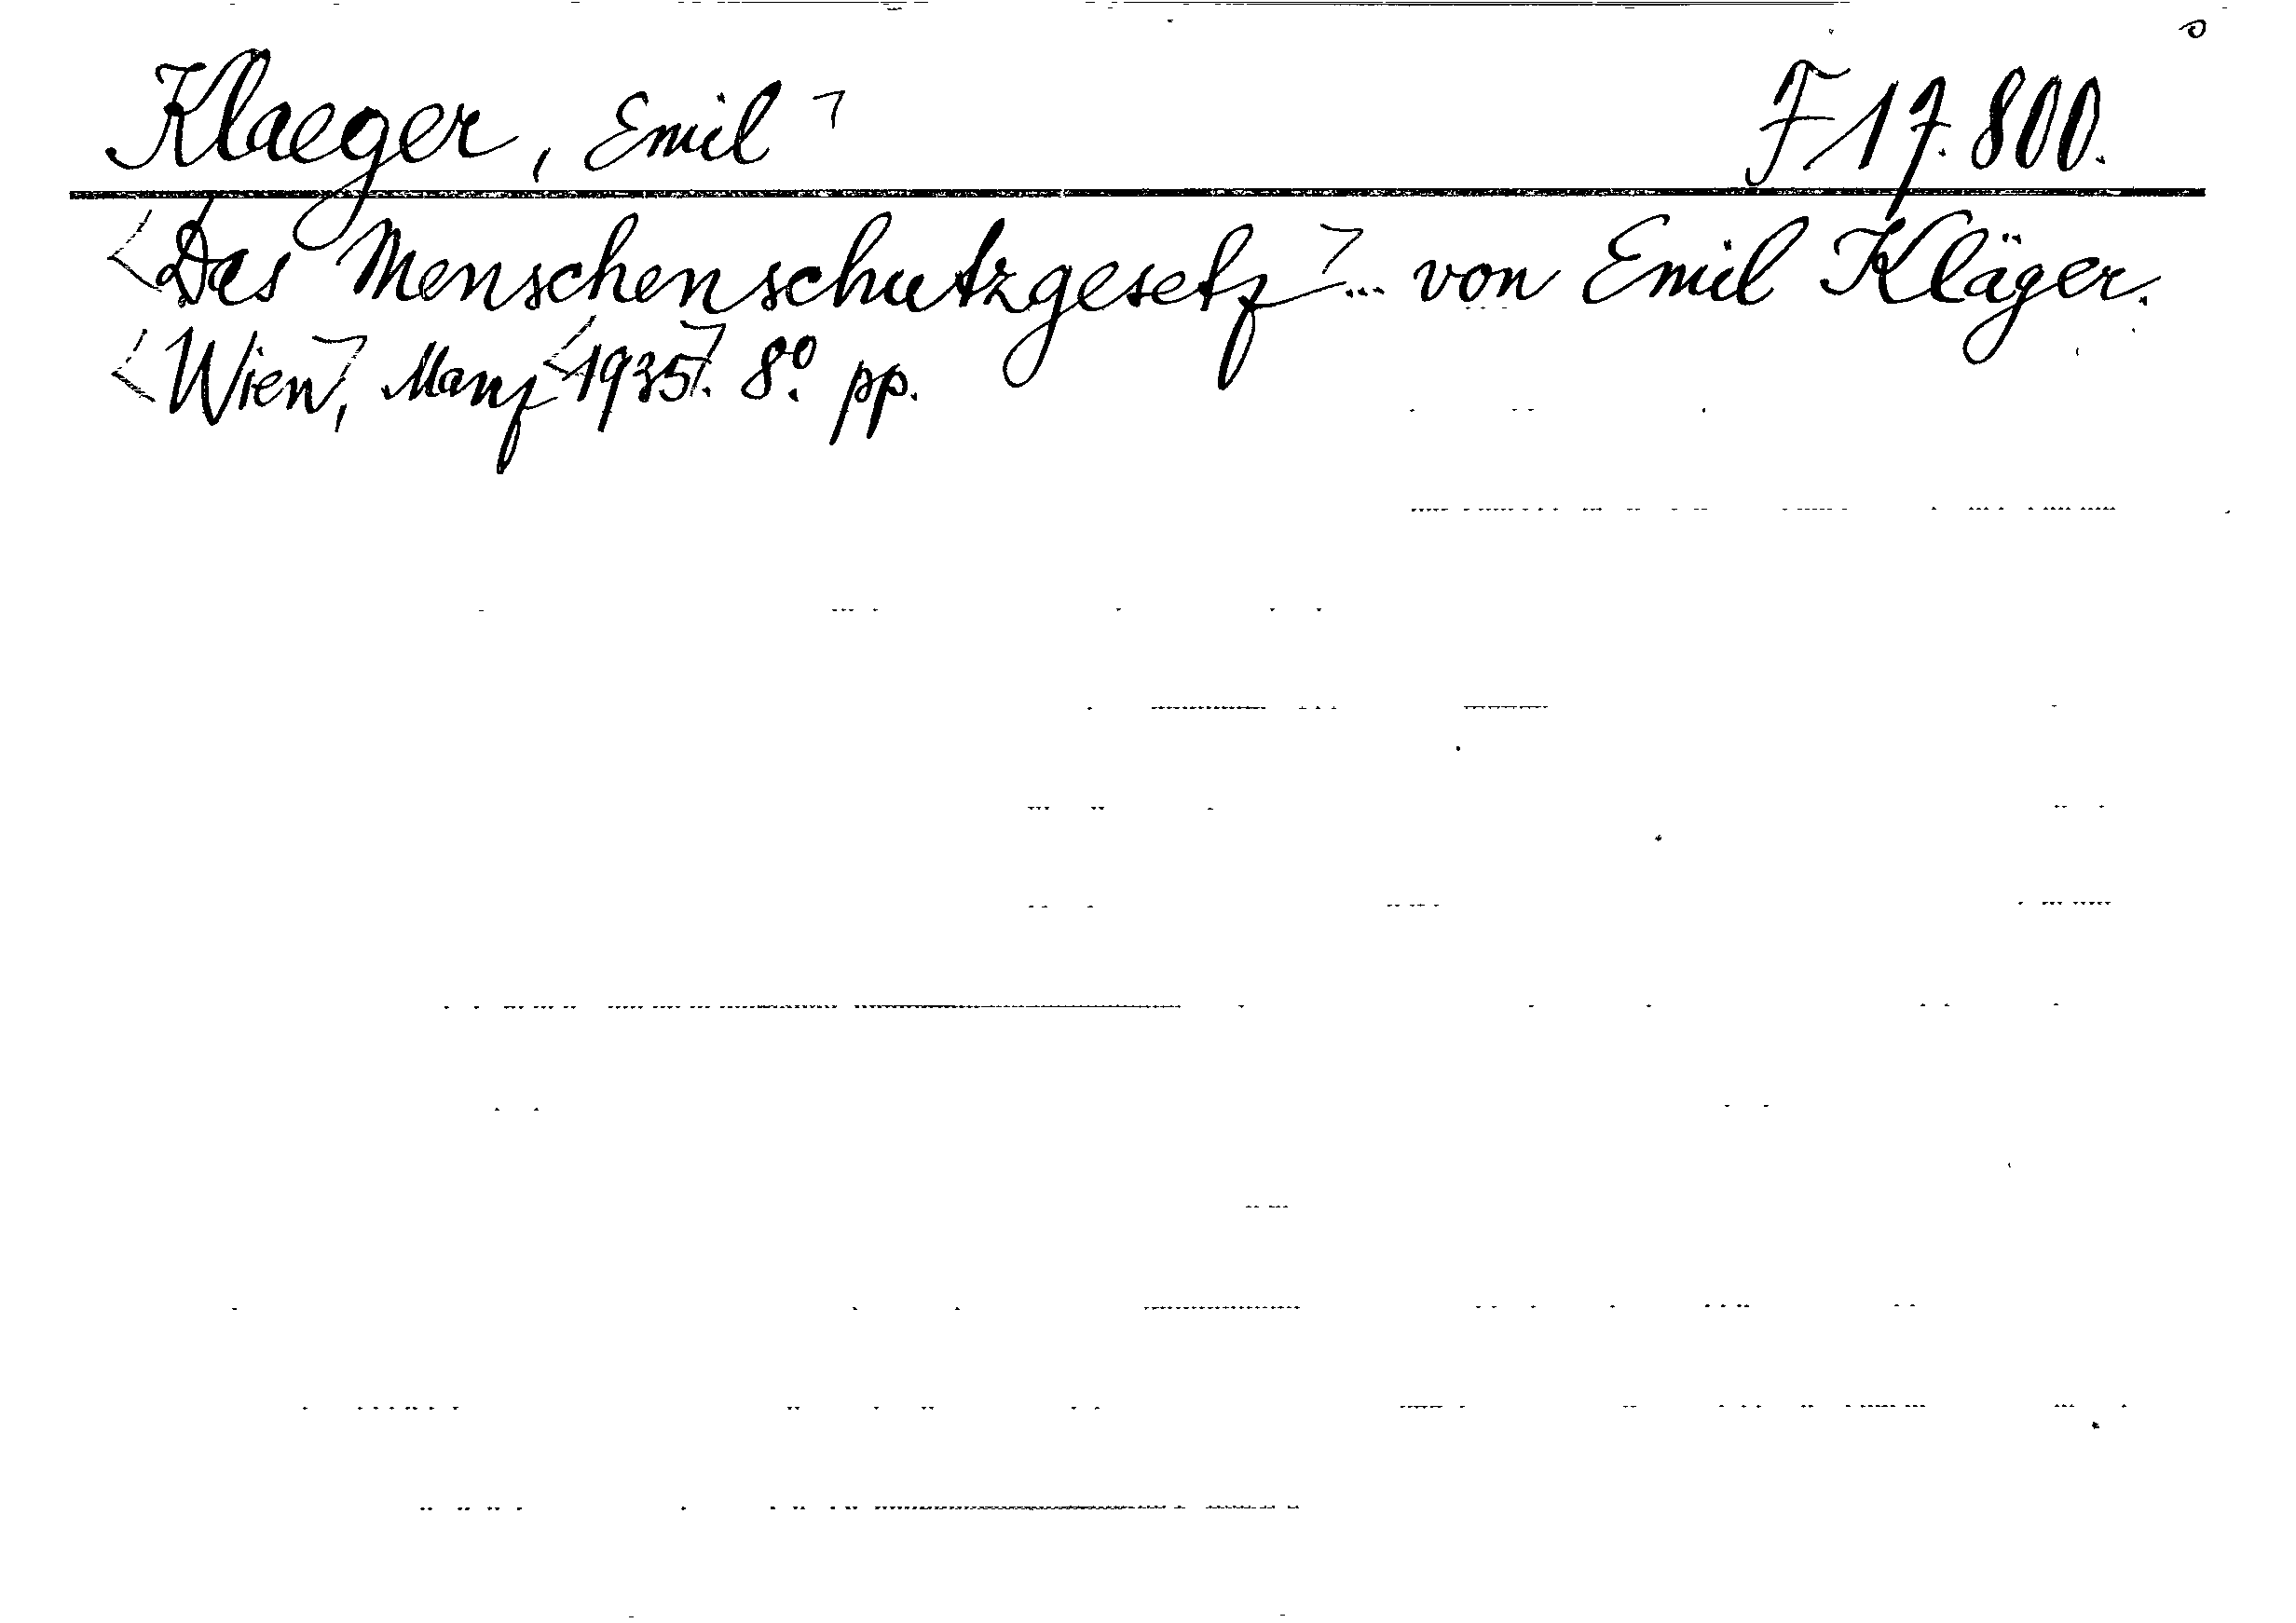 Klaeger, Emil ⁊ F 17.800.
<Das Menschenschutzgesetz⁊... von Emil Kläger.
<Wien⁊, Manz <1935⁊. 8º. pp.